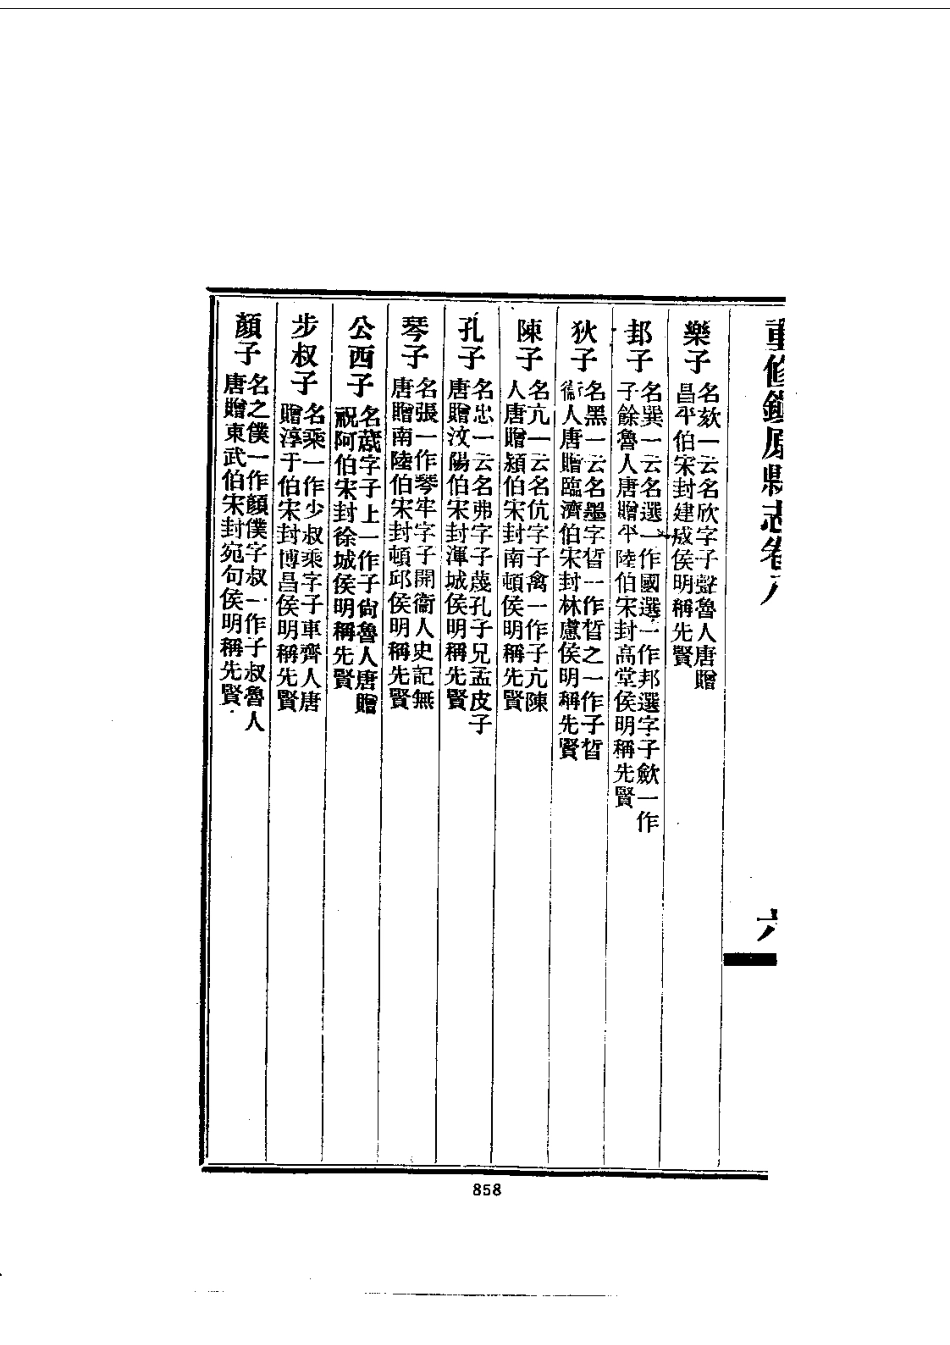 重修鎮原縣志卷八
六
樂子 名欬一云名欣字子聲魯人唐贈
昌平伯宋封建成侯明稱先賢
邽子 名巽一云名選一作國選一作邦選字子歛一作
子餘魯人唐贈平陸伯宋封高堂侯明稱先賢
狄子 名黑一云名墨字皙一作皙之一作子皙
衞人唐贈臨濟伯宋封林慮侯明稱先賢
陳子 名亢一云名伉字子禽一作子亢陳
人唐贈潁伯宋封南頓侯明稱先賢
孔子 名忠一云名弗字子蔑孔子兄孟皮子
唐贈汶陽伯宋封渾城侯明稱先賢
琴子 名張一作琴牢字子開衞人史記無
唐贈南陵伯宋封頓邱侯明稱先賢
公西子 名蒧字子上一作子尙魯人唐贈
祝阿伯宋封徐城侯明稱先賢
步叔子 名乘一作少叔乘字子車齊人唐
贈淳于伯宋封博昌侯明稱先賢
顏子 名之僕一作顏僕字叔一作子叔魯人
唐贈東武伯宋封宛句侯明稱先賢
858